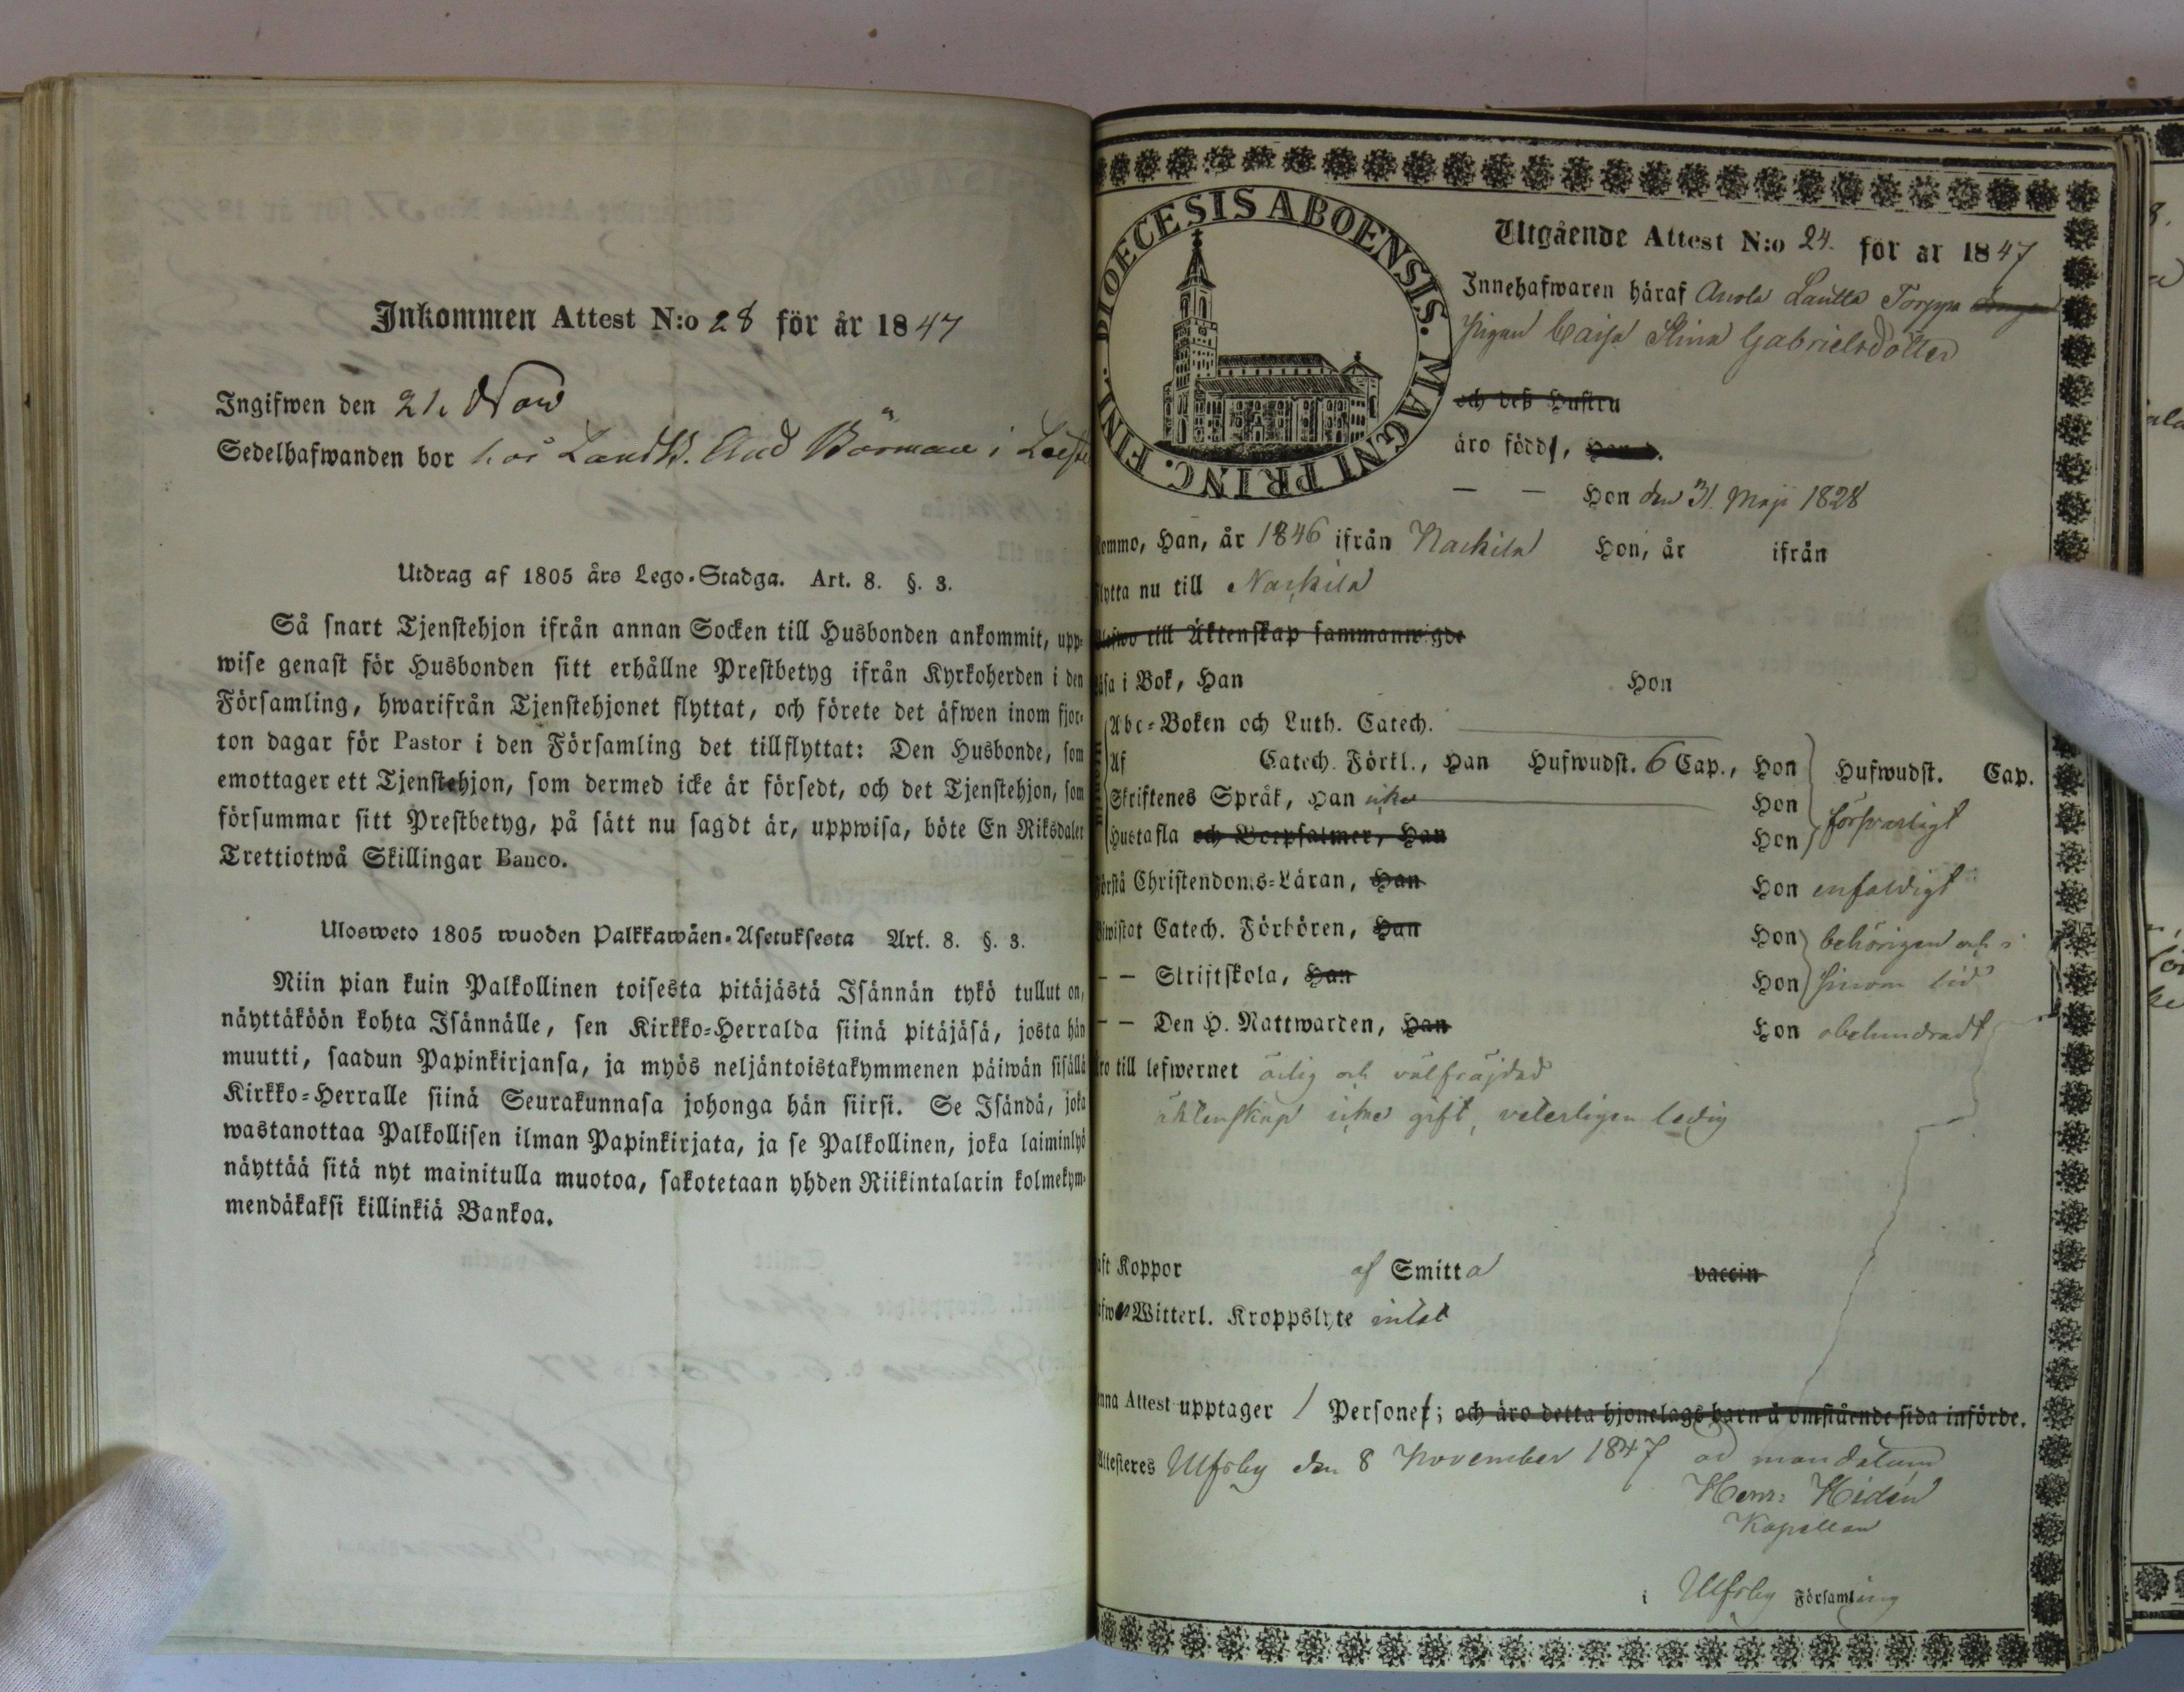 Inkommen Attest N:o 28 för år 1847
Ingifwen den 21 Nov
Sedelhafwanden bor hos And Börman i
Utdrag af 1805 års Lego-Stadga. Art. 8. §. 3.
Så snart Tjenstehjon ifrån annan Socken till Husbonden ankommit, upp-
wise genast för Husbonden sitt erhållne Prestbetyg ifrån Kyrkoherden i den
Församling, hwarifrån Tjenstehjonet flyttat, och förete det äfwen inom fjor-
ton dagar för Pastor i den Församling det tillflyttat: Den Husbonde, som
emottager ett Tjenstehjon, som dermed icke är försedt, och det Tjenstehjon, som
försummar sitt Prestbetyg, på sätt nu sagdt är, uppwisa, böte En Riksdaler
Trettiotwå Skillingar Banco.
Ulosweto 1805 wuoden Palkkawäen-Asetuksesta Art. 8. §. 3.
Niin pian kuin Palkollinen toisesta pitäjästä Isännän tykö tullut on,
näyttäköön kohta Isännälle, sen Kirkko-Herralda siinä pitäjäsä, josta hän
muutti, saadun Papinkirjansa, ja myös neljäntoistakymmenen päiwän sisällä
Kirkko-Herralle siinä Seurakunnasa johonga hän siirsi. Se Isändä, joka
wastanottaa Palkollisen ilman Papinkirjata, ja se Palkollinen, joka laiminlyö
näyttää sitä nyt mainitulla muotoa, sakotetaan yhden Riikintalarin kolmekym-
mendäkaksi killinkiä Bankoa.
DIOECESIS ABOENSIS. MAGNI PRINC. FINL.
Utgående Attest N:o 24. för år 1847
Innehafwaren häraf Anola Lautta Torppa
Pigan Caisa Stina Gabrielsdotter
och deß Hustru
äro född,
— — Hon den 31 Maji 1828
kommo, Han, år 1846 ifrån Nackila Hon, år ifrån
flytta nu till Nackila
Blefwo till Äktenskap sammanwigde
läsa i Bok, Han Hon
Abc-Boken och Luth. Catech.
Af Catech. Förkl., Han Hufwudst. 6 Cap., Hon Hufwudst. Cap.
Skriftenes Språk, Han icke Hon försvarligt
Hustafla och Botpsalmer, Han Hon
förstå Christendoms-Läran, Han Hon enfaldigt
Biwistat Catech. Förhören, Han Hon behörigen och i
— — Skriftskola, Han Hon sinom tid
— — Den H. Nattwarden, Han Hon obehindradt
äro till lefwernet ärlig och välfräjdad
äktenskap icke gift, veterligen ledig
haft Koppor af Smitta vaccin
Witterl. Kroppslyte intet
denna Attest upptager 1 Person; och äro detta hjonelags barn å omstående sida införde.
Attesteres Ulfsby den 8 November 1847 ad mandatum
Henr: Hidén
Kapellan
i Ulfsby Församling